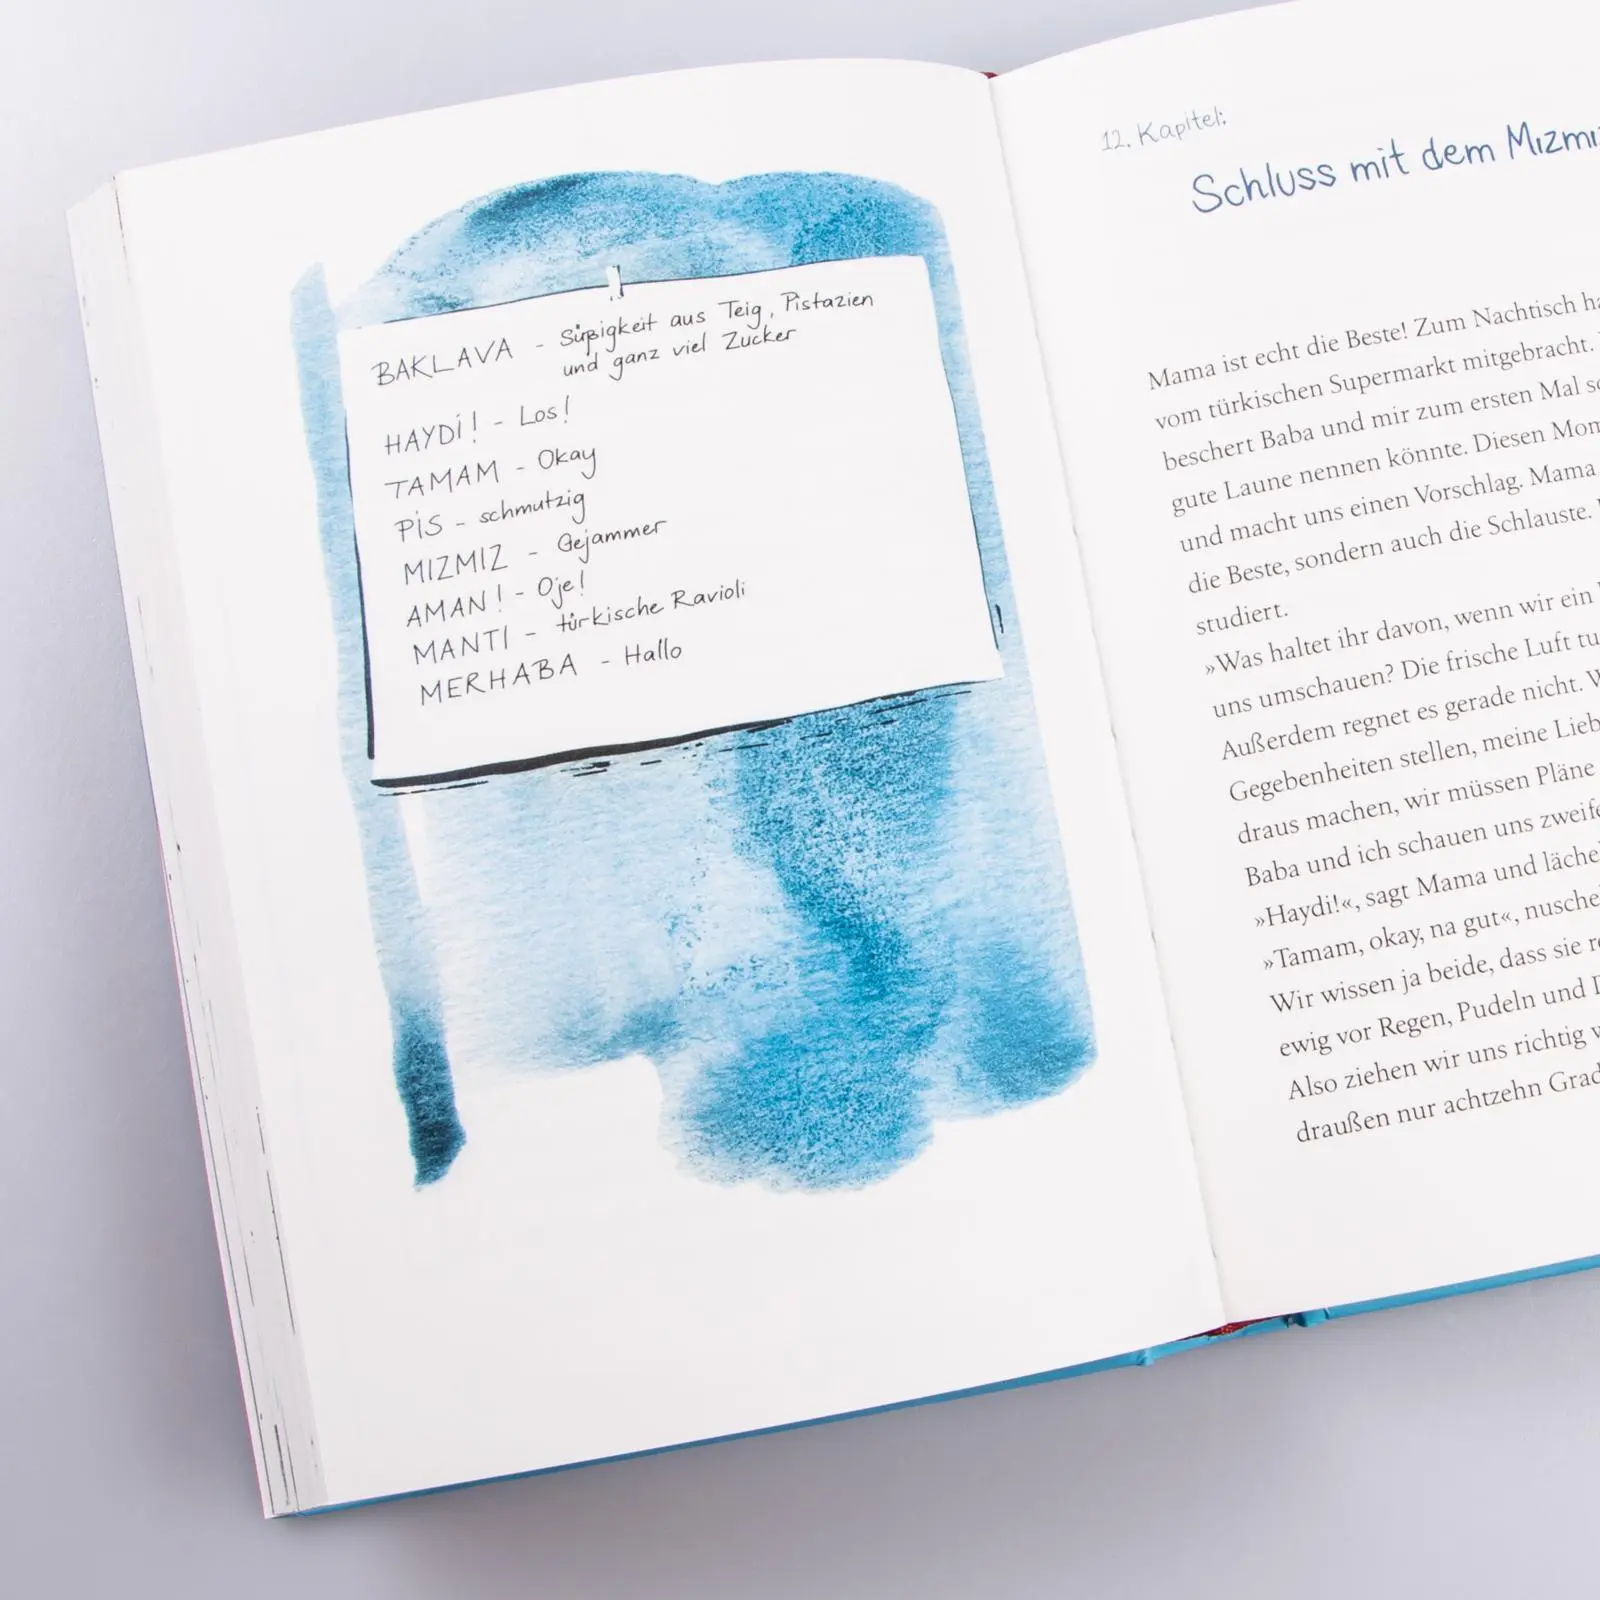 BAKLAVA - Süßigkeit aus Teig, Pistazien
und ganz viel Zucker
HAYDİ! - Los!
TAMAM - Okay
PİS - schmutzig
MIZMIZ - Gejammer
AMAN! - Oje!
MANTI - türkische Ravioli
MERHABA - Hallo
12. Kapitel:
Schluss mit dem Mızmı
Mama ist echt die Beste! Zum Nachtisch ha
vom türkischen Supermarkt mitgebracht.
beschert Baba und mir zum ersten Mal so
gute Laune nennen könnte. Diesen Mom
und macht uns einen Vorschlag. Mama
die Beste, sondern auch die Schlauste.
studiert.
»Was haltet ihr davon, wenn wir ein
uns umschauen? Die frische Luft tu
Außerdem regnet es gerade nicht. W
Gegebenheiten stellen, meine Lieb
draus machen, wir müssen Pläne
Baba und ich schauen uns zweife
»Haydi!«, sagt Mama und läche
»Tamam, okay, na gut«, nusche
Wir wissen ja beide, dass sie re
ewig vor Regen, Pudeln und D
Also ziehen wir uns richtig w
draußen nur achtzehn Grad